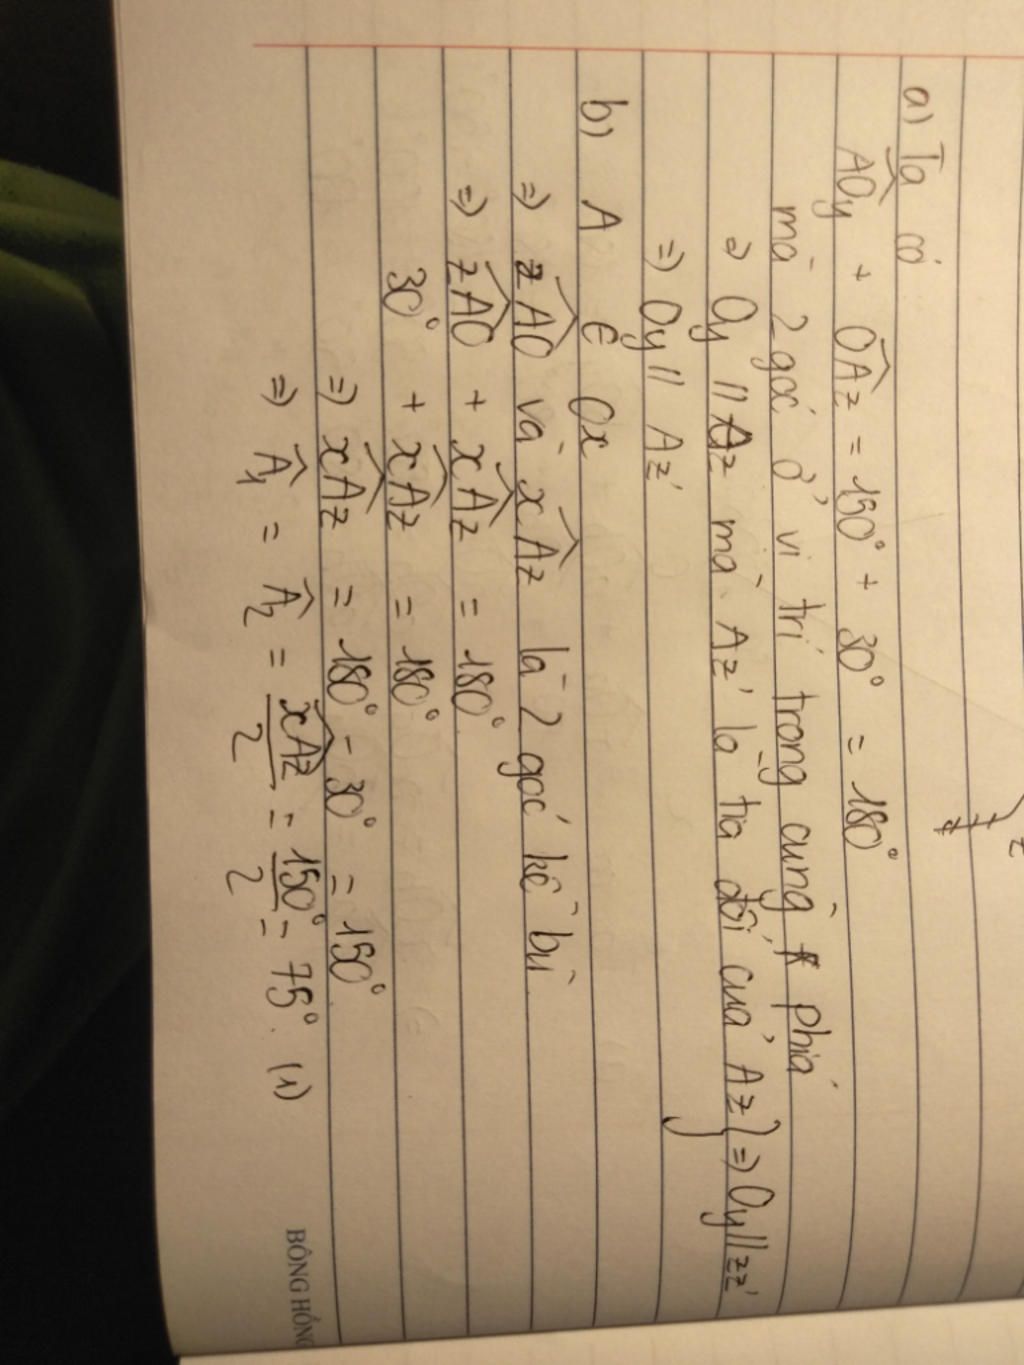 z
a) Ta có
AOy + OAz = 150° + 30° = 180°
mà 2 góc ở vị trí trong cùng phía
⇒ Oy // Az mà Az' là tia đối của Az } ⇒ Oy // zz'
⇒ Oy // Az'
b) A ∈ Ox
⇒ zAO và xAz là 2 góc kề bù.
⇒ zAO + xAz = 180°
30° + xAz = 180°
⇒ xAz = 180° - 30° = 150°
⇒ A1 = A2 = xAz/2 = 150°/2 = 75°. (1)
BÔNG HỒNG